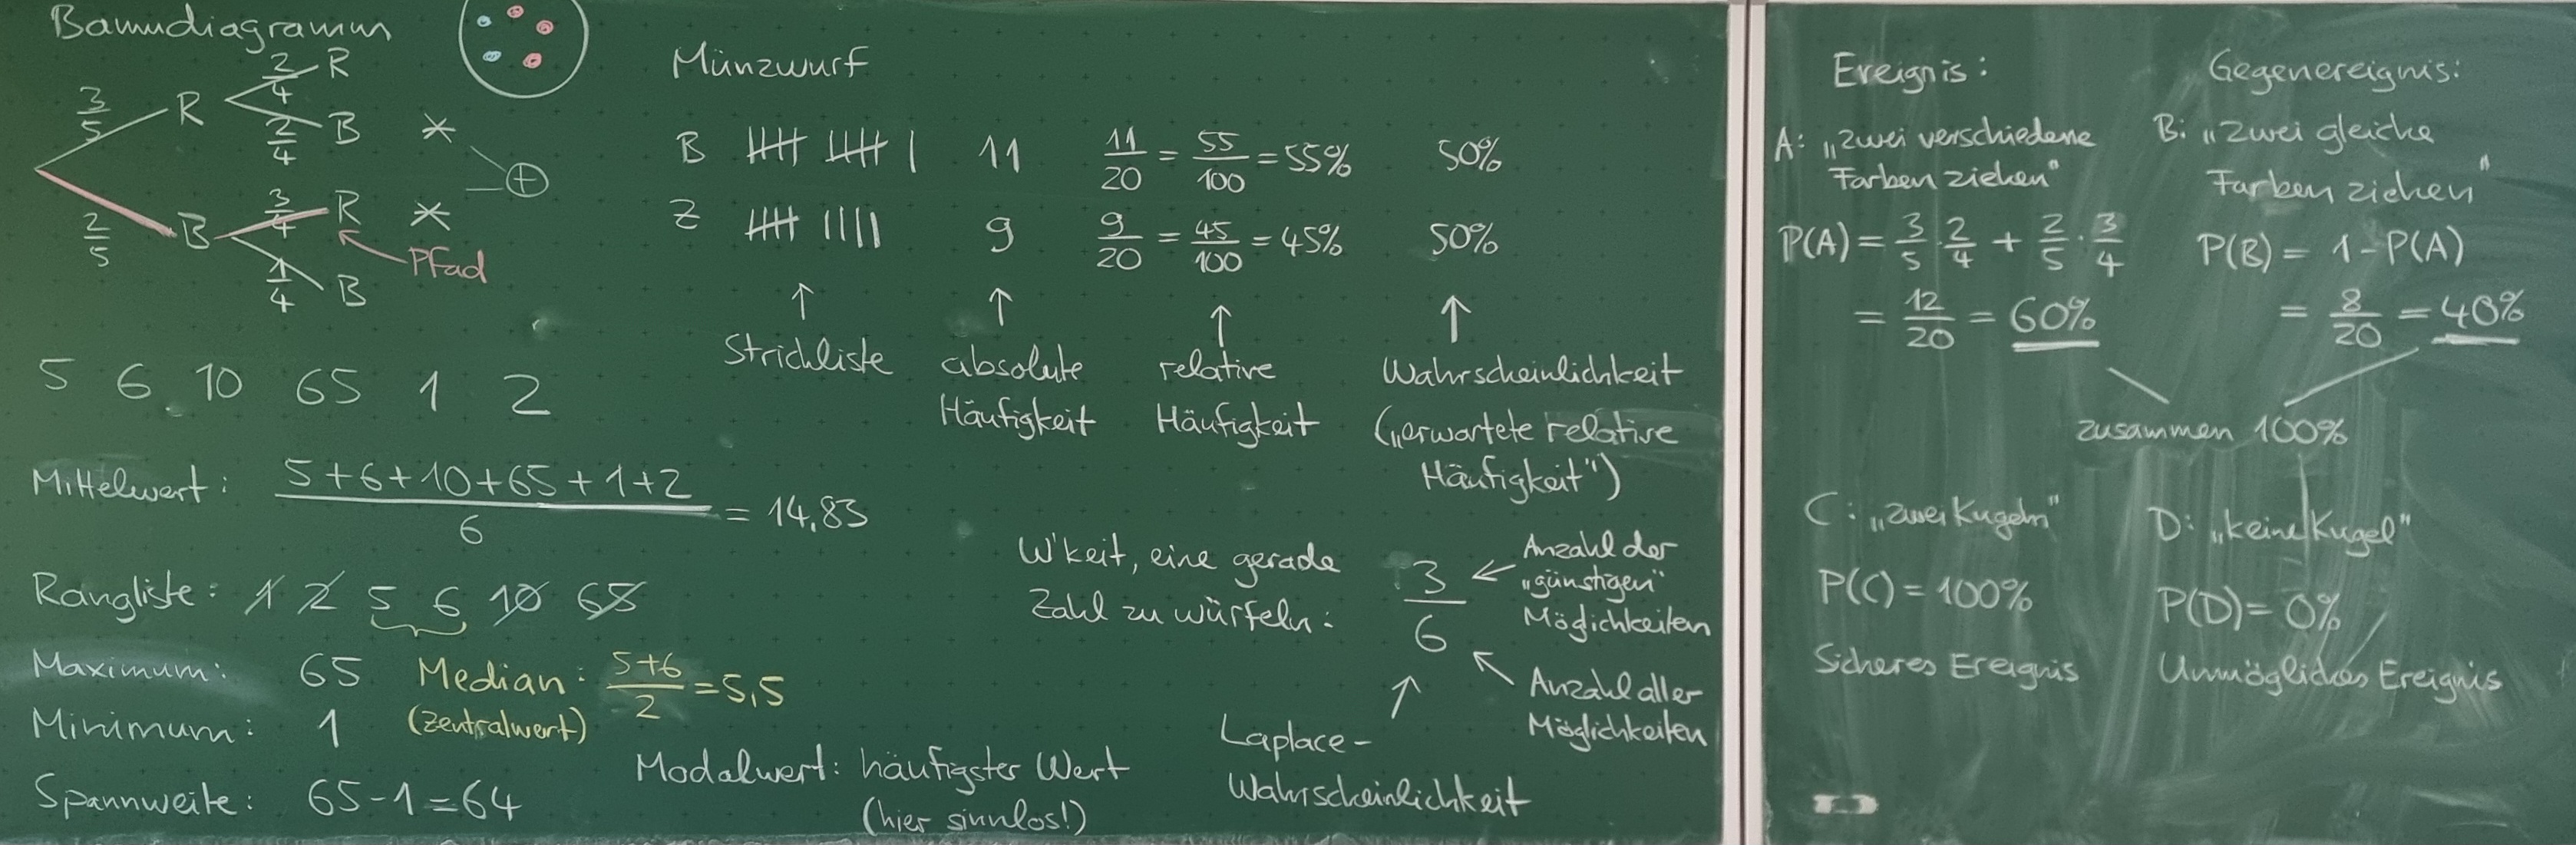 Baumdiagramm
3/5 R 2/4 R
2/4 B *
⊕
2/5 B 3/4 R *
1/4 B
Pfad
Münzwurf
B |||| |||| | 11 11/20 = 55/100 = 55% 50%
Z |||| |||| 9 9/20 = 45/100 = 45% 50%
↑ ↑ ↑ ↑
Strichliste
absolute
Häufigkeit
relative
Häufigkeit
Wahrscheinlichkeit
(„erwartete relative
Häufigkeit")
5 6 10 65 1 2
Mittelwert: (5+6+10+65+1+2)/6 = 14,83
Rangliste: 1 2 5 6 10 65
Maximum: 65
Minimum: 1
Spannweite: 65-1=64
Median: (5+6)/2 = 5,5
(Zentralwert)
Modalwert: häufigster Wert
(hier sinnlos!)
W'keit, eine gerade
Zahl zu würfeln: 3/6
← Anzahl der
„günstigen"
Möglichkeiten
↖ Anzahl aller
Möglichkeiten
↑
Laplace-
Wahrscheinlichkeit
Ereignis:
A: „zwei verschiedene
Farben ziehen"
P(A) = 3/5 · 2/4 + 2/5 · 3/4
= 12/20 = 60%
Gegenereignis:
B: „zwei gleiche
Farben ziehen"
P(B) = 1-P(A)
= 8/20 = 40%
zusammen 100%
C: „zwei Kugeln"
P(C) = 100%
Sicheres Ereignis
D: „keine Kugel"
P(D) = 0%
Unmögliches Ereignis